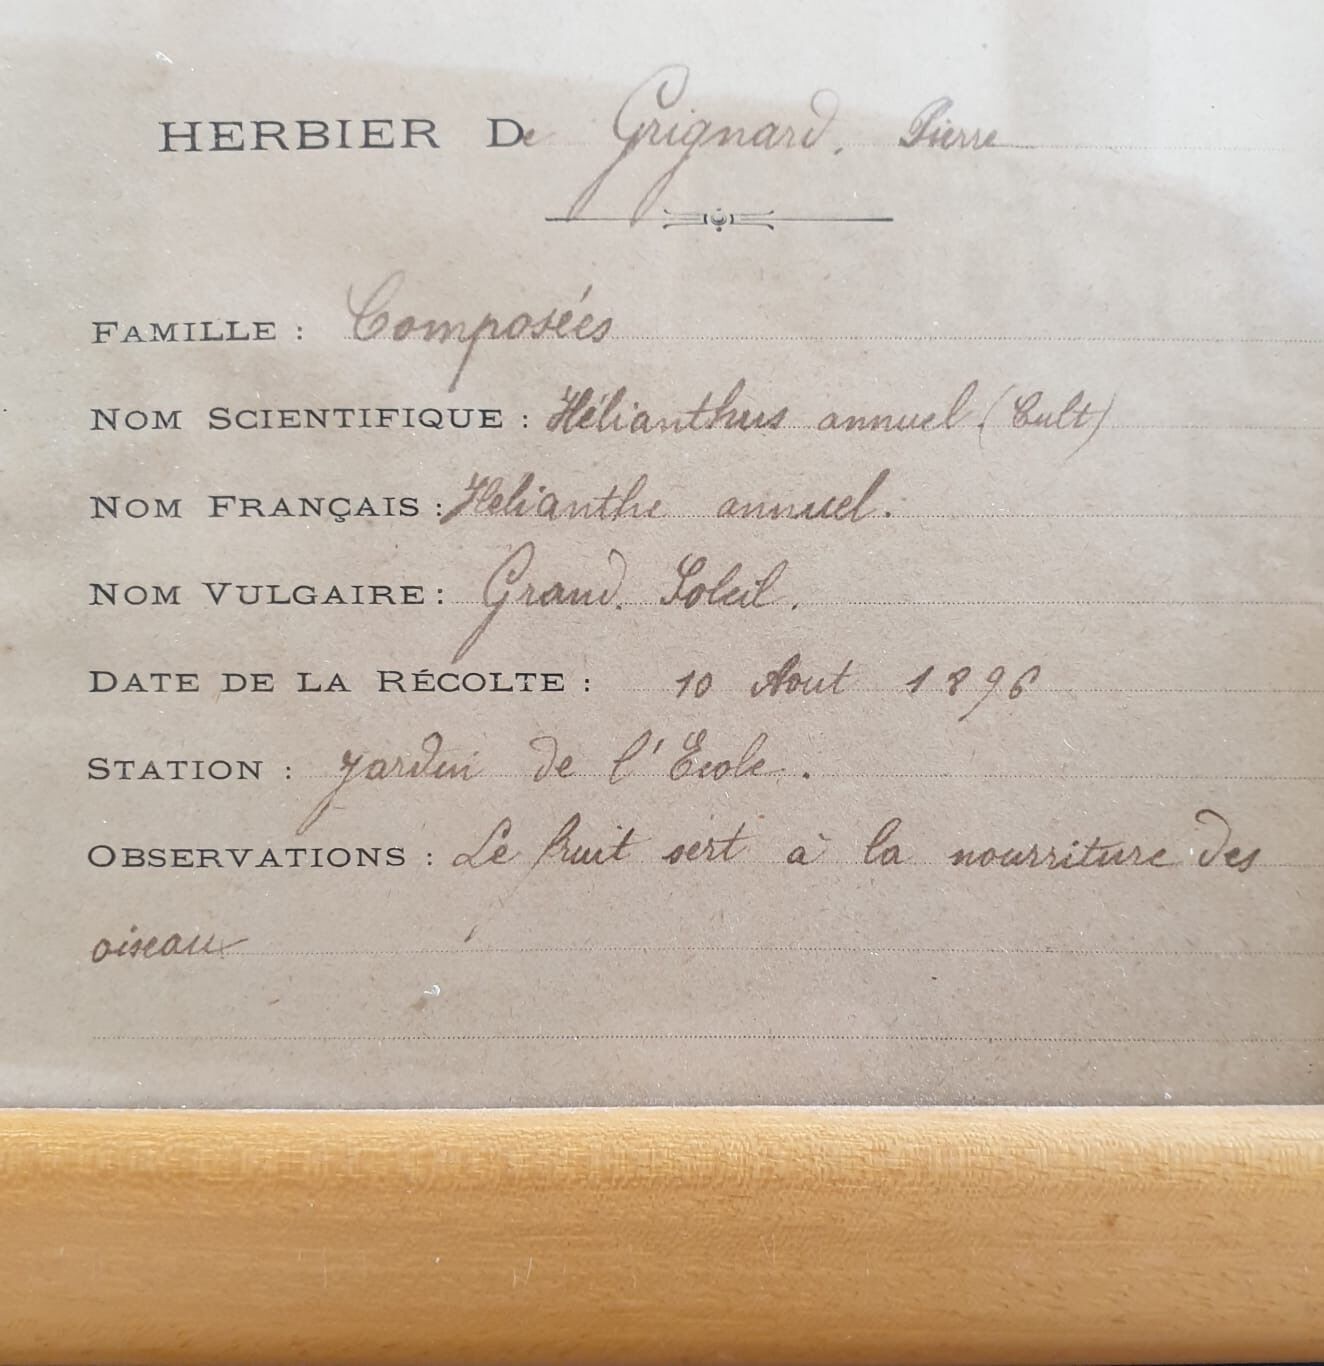 HERBIER De Grignard. Pierre
FAMILLE : Composées
NOM SCIENTIFIQUE : Hélianthus annuel. (Cult)
NOM FRANÇAIS : Helianthe annuel.
NOM VULGAIRE : Grand. Soleil.
DATE DE LA RÉCOLTE : 10 Aout 1896
STATION : Jardin de l'Ecole.
OBSERVATIONS : Le fruit sert à la nourriture des
oiseaux